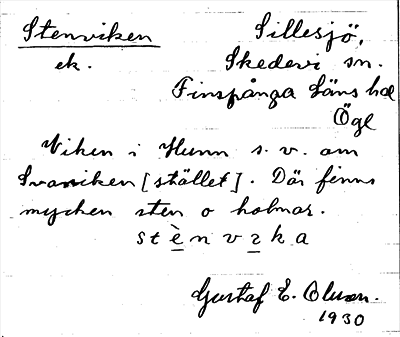 Stenviken
ek.
Sillesjö,
Skedevi sn.
Finspånga läns hd
Ögl
Viken i Hunn s.v. om
Svanviken [stället]. Där finns
mycken sten o holmar.
stènvɛka
Gustaf E. Olsson.
1930